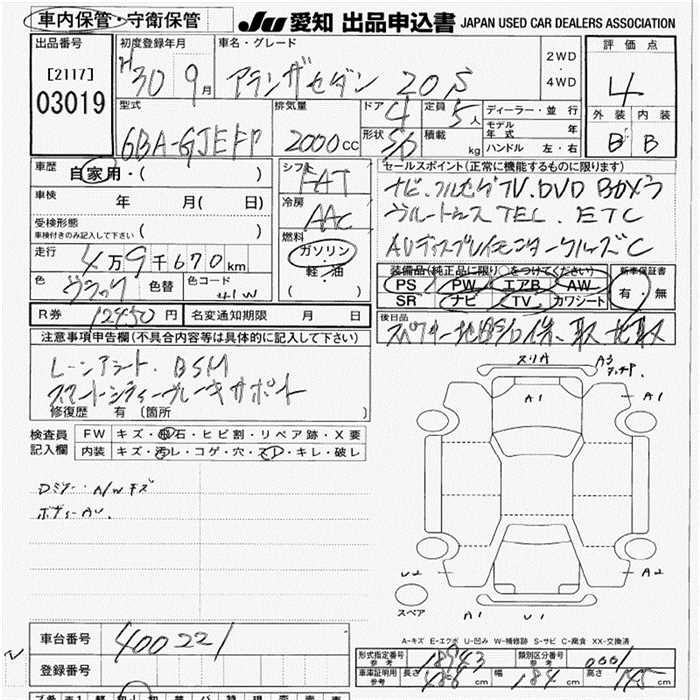 車内保管・守衛保管
JU 愛知 出品申込書 JAPAN USED CAR DEALERS ASSOCIATION
出品番号
[2117]
03019
初度登録年月
H30 9月
車名・グレード
アクセラセダン 20S
2WD
・
4WD
評価点
4
外装 内装
B B
型式
6BA-
排気量
2000cc
ドア 4
形状 36
定員 5人
積載 kg
ディーラー・並行
モデル年式 年
ハンドル 左・右
車歴 自家用・( )
車検 年 月( 日)
受検形態
車検付きのみ記入して下さい ( )
走行 4万9千670km
色 ブラック 色替 色コード 41W
シフト
FAT
冷房
AAC
燃料
ガソリン
・軽・油
( )
セールスポイント(正常に機能するものに限ります)
ナビ.フルセグTV.DVD BOSE
ブルートゥース TEL. ETC
AVディスプレイモニター クルーズC
装備品(純正品に限り○をつけてください)
PS PW エアB AW
SR ナビ TV カワシート
新車保証書
有・無
R券 12450円 名変通知期限 月 日
後日品
注意事項申告欄(不具合内容等は具体的に記入して下さい)
レーンアシスト. BSM
スマートシティブレーキサポート
修復歴 有 〔箇所 〕
検査員記入欄
FW キズ・飛石・ヒビ割・リペア跡・X要
内装 キズ・汚レ・コゲ・穴・スレ・キレ・破レ
Dミラー・A/Wキズ
ボディーAU.
スリA A3
タッチP
A1 A1
U2 A2
A1 U1
スペア
A-キズ E-エクボ U-凹み W-補修跡 S-サビ C-腐食 XX-交換済
車台番号 400221
登録番号
形式指定番号 参考 18943 類別区分番号 参考 0001
車庫証明用 参考 長さ 458cm 幅 184cm 高さ 145cm